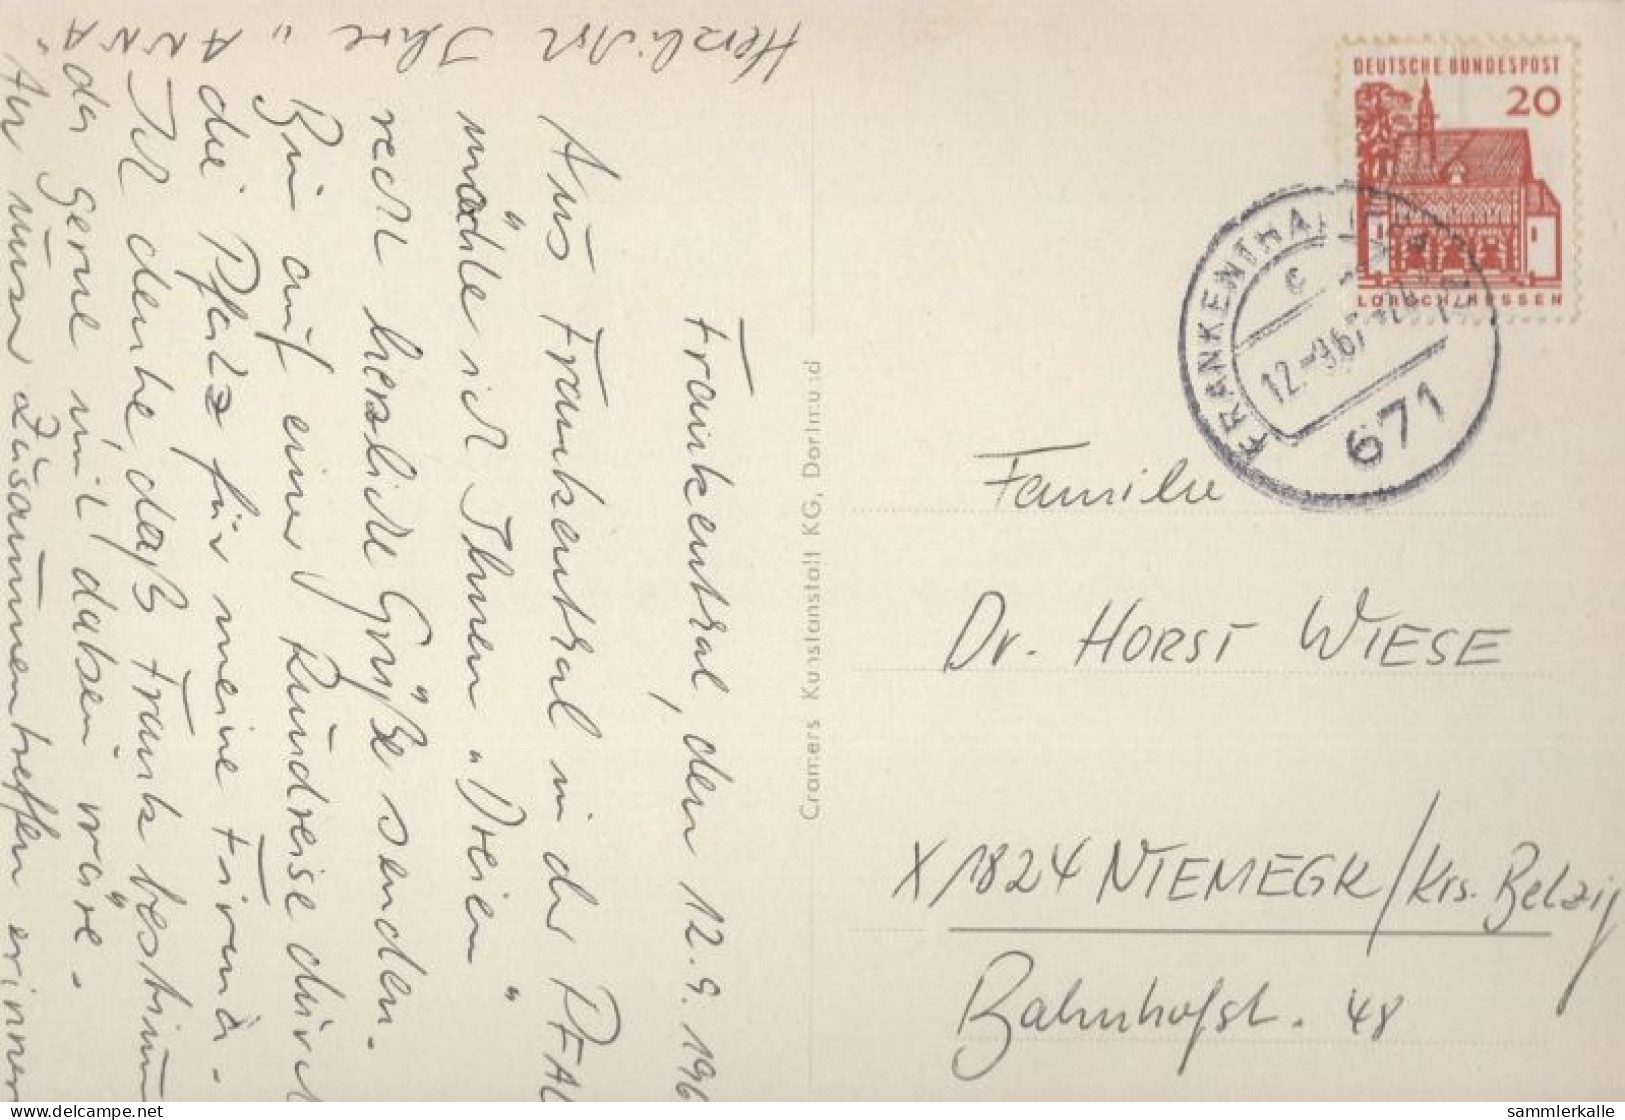 Frankenthal, den 12.9.196
Aus Frankenthal in der PFAL
möchte ich Ihnen "Dreien"
recht herzliche Grüße senden.
Bin auf einer Rundreise durch
die Pfalz für meine Firma.
Ich denke daß Frank bestimm
da gerne mit dabei wäre.
An unser Zusammentreffen erinner
Herzlichst
Ihre
"
Cramers Kunstanstalt KG, Dortmund
DEUTSCHE BUNDESPOST
20
LORSCH/HESSEN
FRANKENTHAL
12.-9.67
671
Familie
Dr. HORST WIESE
X 1824 NIEMEGK/Krs. Belzig
Bahnhofstr. 48
sammlerkalle
delcampe.net